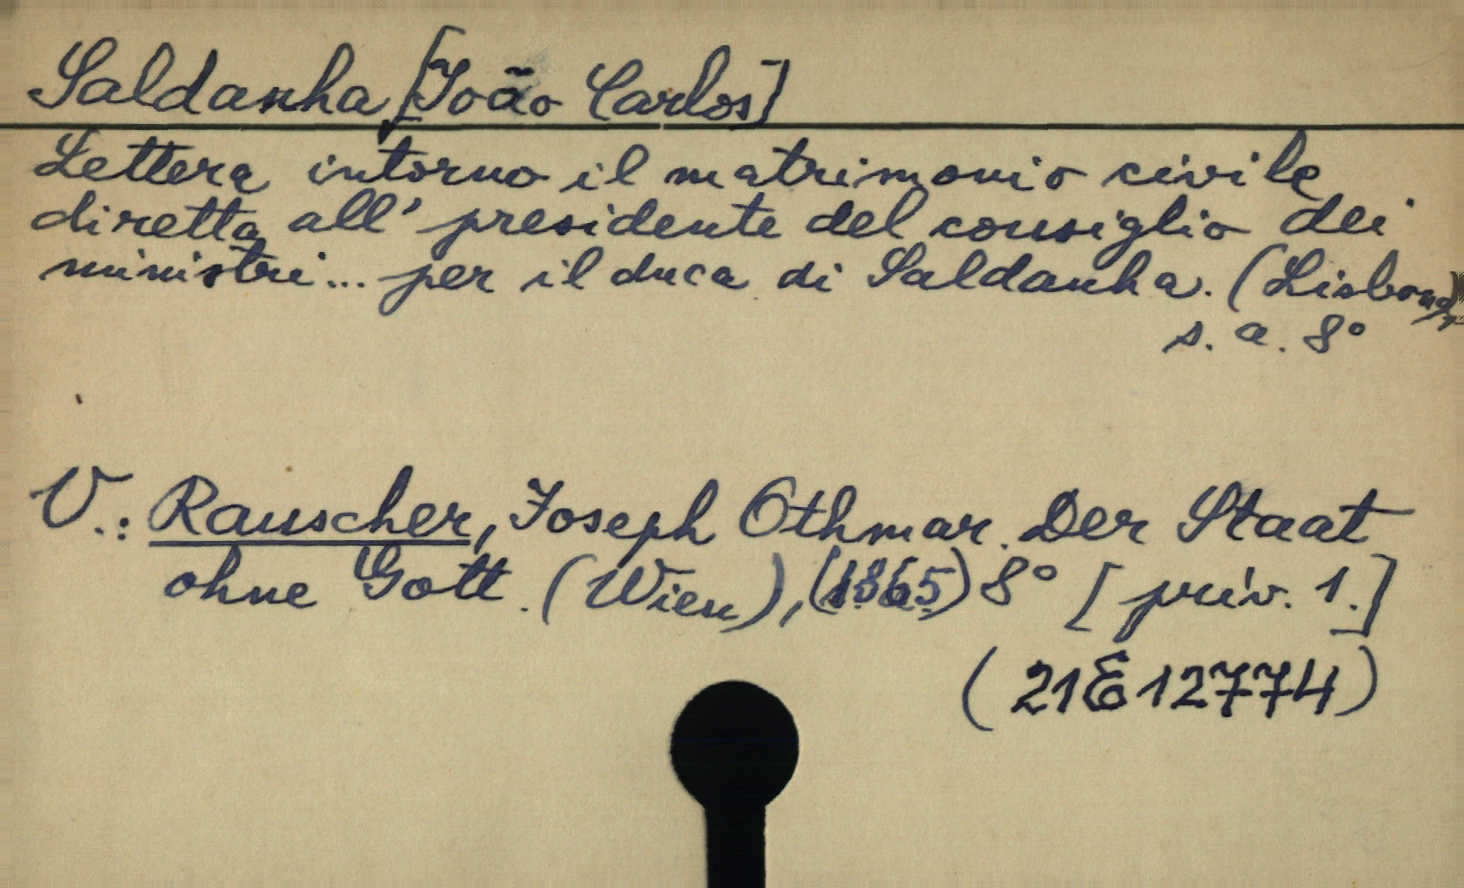 Saldanha, [João Carlos]
Lettera intorno il matrimonio civile
diretta all' presidente del consiglio dei
ministri... per il duca di Saldanha. (Lisbona),
s. a. 8°
V.: Rauscher, Joseph Othmar. Der Staat
ohne Gott. (Wien), (1865) 8° [priv. 1.]
(21E12774)